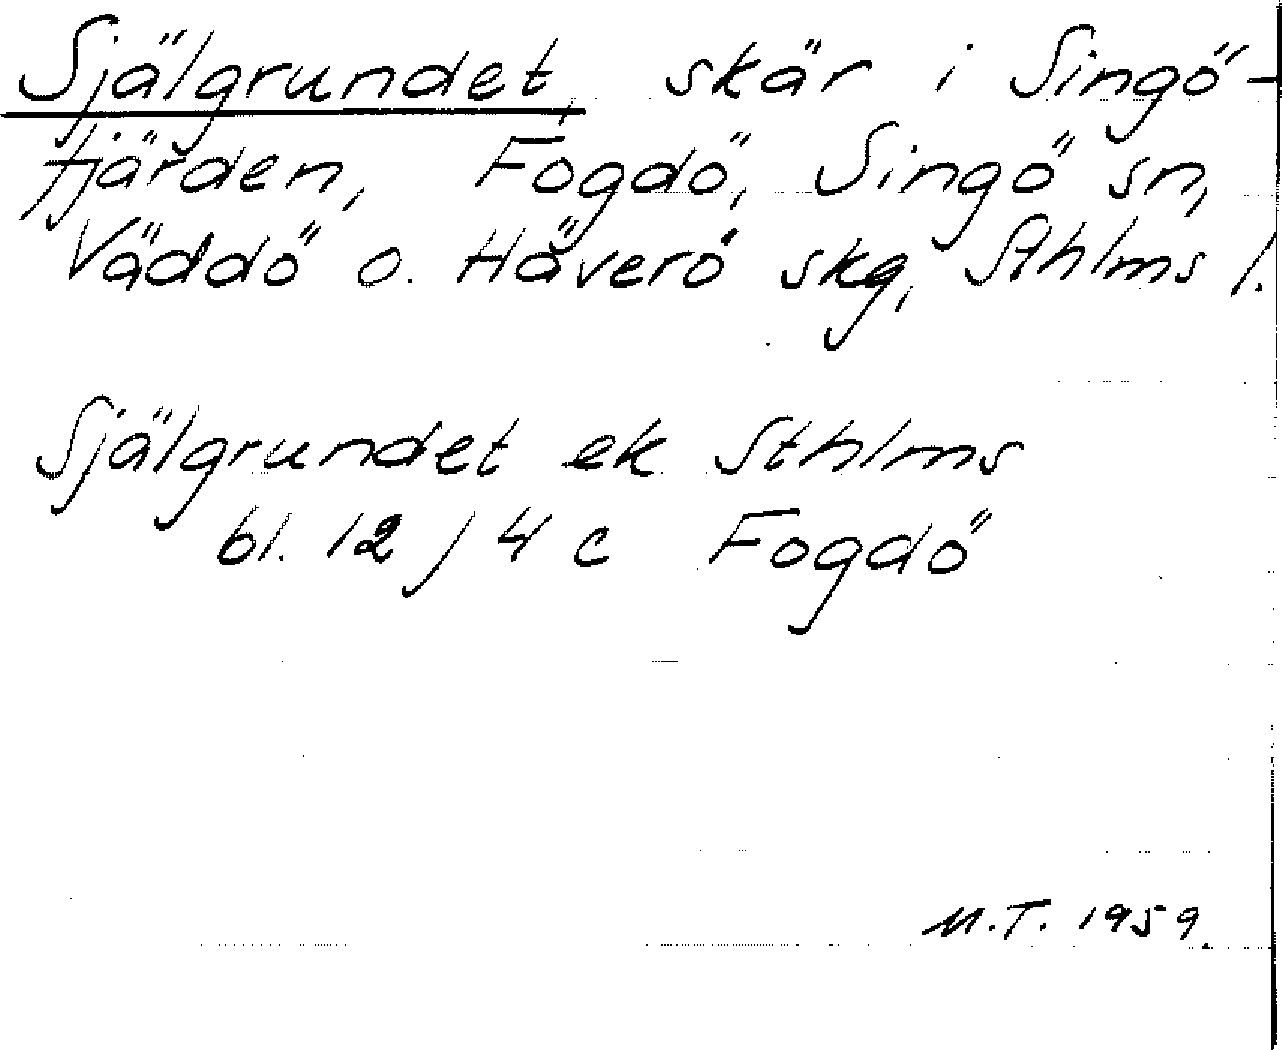 Själgrundet, skär i Singö-
fjärden, Fogdö, Singö sn,
Väddö o. Häverö skg, Sthlms l.
Själgrundet ek Sthlms
bl. 12 / 4 c Fogdö
M.T. 1959.